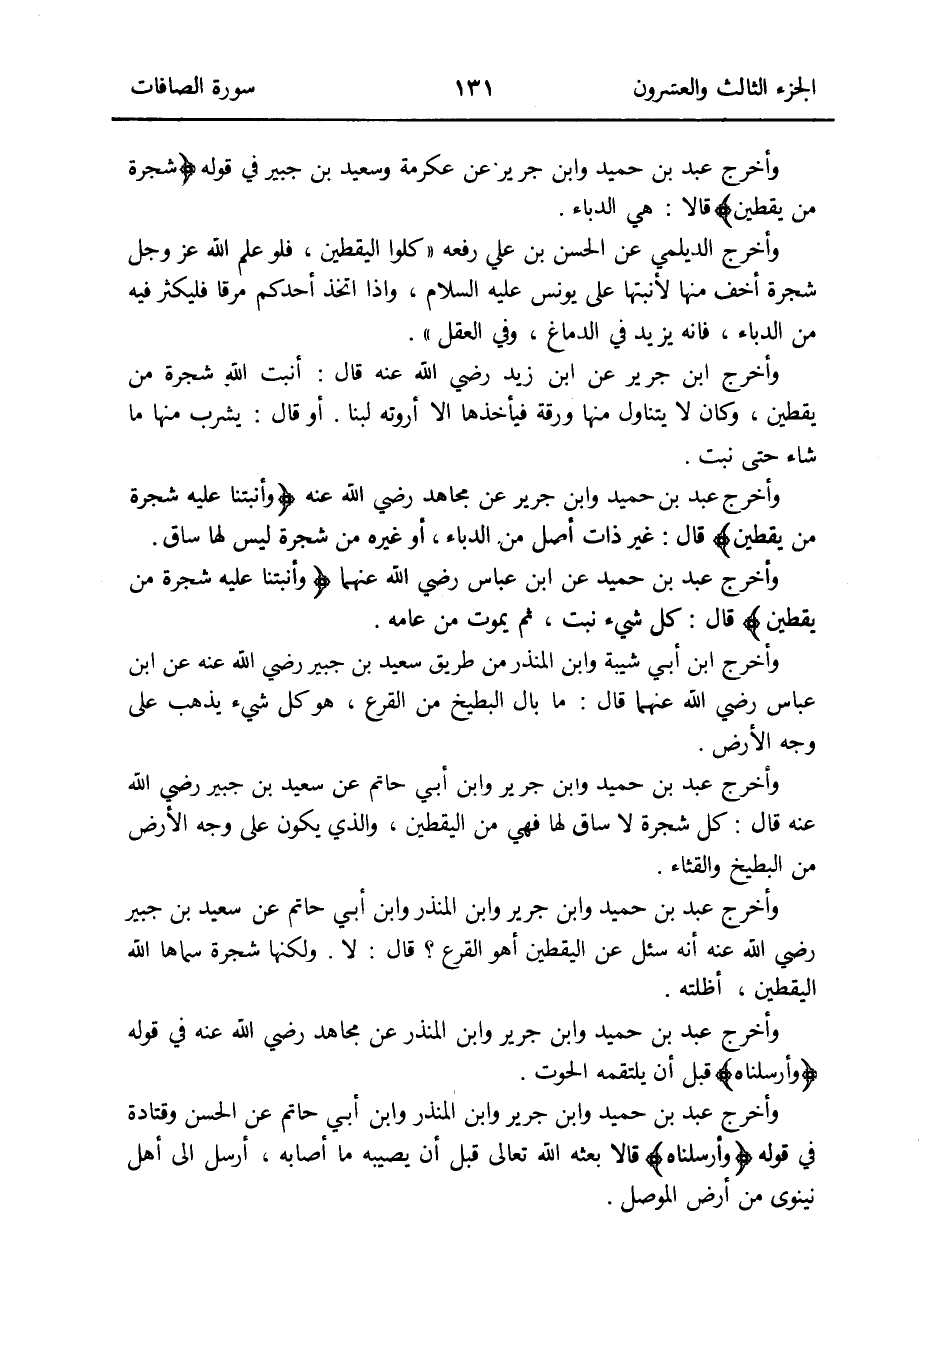 الجزء الثالث والعشرون ١٣١ سورة الصافات
وأخرج عبد بن حميد وابن جرير عن عكرمة وسعيد بن جبير في قوله ﴿شجرة
من يقطين﴾ قالا : هي الدباء .
وأخرج الديلمي عن الحسن بن علي رفعه « كلوا اليقطين ، فلو علم الله عز وجل
شجرة أخف منها لأنبتها على يونس عليه السلام ، واذا اتخذ أحدكم مرقا فليكثر فيه
من الدباء ، فانه يزيد في الدماغ ، وفي العقل » .
وأخرج ابن جرير عن ابن زيد رضي الله عنه قال : أنبت الله شجرة من
يقطين ، وكان لا يتناول منها ورقة فيأخذها الا أروته لبنا . أو قال : يشرب منها ما
شاء حتى نبت .
وأخرج عبد بن حميد وابن جرير عن مجاهد رضي الله عنه ﴿وأنبتنا عليه شجرة
من يقطين﴾ قال : غير ذات أصل من الدباء ، أو غيره من شجرة ليس لها ساق .
وأخرج عبد بن حميد عن ابن عباس رضي الله عنهما ﴿ وأنبتنا عليه شجرة من
يقطين ﴾ قال : كل شيء نبت ، ثم يموت من عامه .
وأخرج ابن أبي شيبة وابن المنذر من طريق سعيد بن جبير رضي الله عنه عن ابن
عباس رضي الله عنهما قال : ما بال البطيخ من القرع ، هو كل شيء يذهب على
وجه الأرض .
وأخرج عبد بن حميد وابن جرير وابن أبي حاتم عن سعيد بن جبير رضي الله
عنه قال : كل شجرة لا ساق لها فهي من اليقطين ، والذي يكون على وجه الأرض
من البطيخ والقثاء .
وأخرج عبد بن حميد وابن جرير وابن المنذر وابن أبي حاتم عن سعيد بن جبير
رضي الله عنه أنه سئل عن اليقطين أهو القرع ؟ قال : لا . ولكنها شجرة سماها الله
اليقطين ، أظلته .
وأخرج عبد بن حميد وابن جرير وابن المنذر عن مجاهد رضي الله عنه في قوله
﴿وأرسلناه﴾ قبل أن يلتقمه الحوت .
وأخرج عبد بن حميد وابن جرير وابن المنذر وابن أبي حاتم عن الحسن وقتادة
في قوله ﴿وأرسلناه﴾ قالا بعثه الله تعالى قبل أن يصيبه ما أصابه ، أرسل الى أهل
نينوى من أرض الموصل .